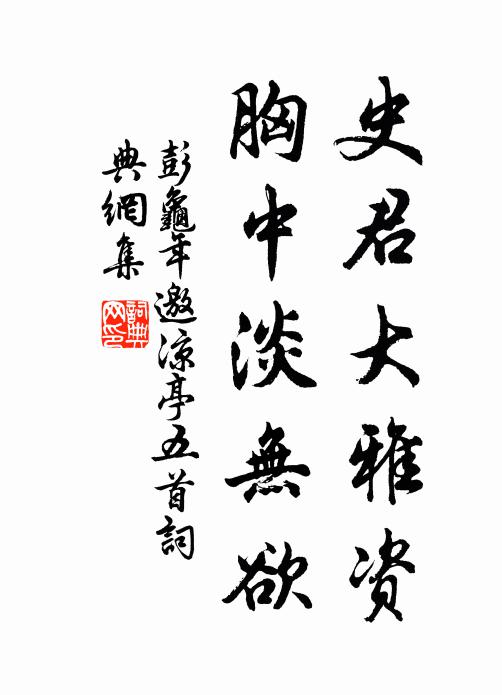 史君大雅资
胸中淡無欲
彭龜年邀涼亭五首詞
典網集
詞典网印